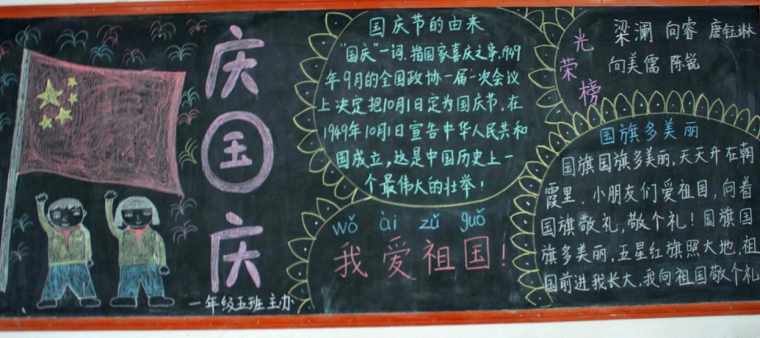 庆国庆
一年级五班主办
国庆节的由来
"国庆"一词,指国家喜庆之事,1949
年9月的全国政协一届一次会议
上决定把10月1日定为国庆节,在
1949年10月1日宣告中华人民共和
国成立,这是中国历史上一
个最伟大的壮举!
wǒ ài zǔ guǒ
我爱祖国!
光荣榜
梁澜 向睿 唐钰琳
向美儒 陈锐
国旗多美丽
国旗国旗多美丽,天天升在朝
霞里,小朋友们爱祖国,向着
国旗敬礼,敬个礼!国旗国
旗多美丽,五星红旗照大地,祖
国前进我长大,我向祖国敬个礼